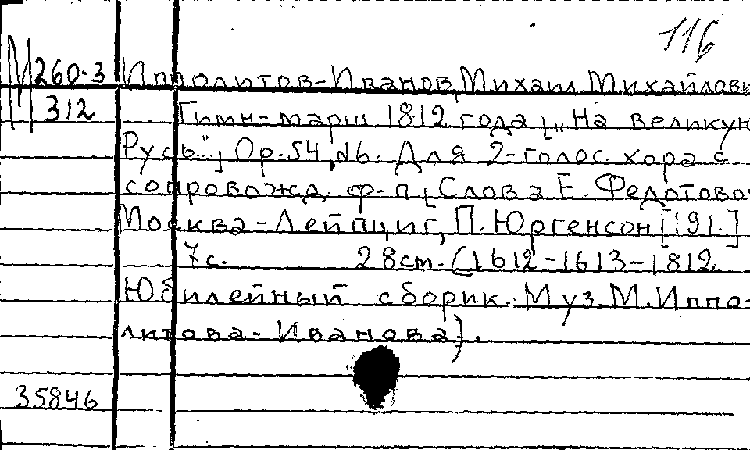 116
М 260-3 Ипполитов-Иванов, Михаил Михайлови
312 Гимн-марш 1812 года „На великую
Русь", Op.54, №6. Для 2-голос. хора с
сопровожд. ф-п, Слова Е. Федотово
Москва-Лейпциг, П. Юргенсон [191.]
7с. 28cm. (1612-1613-1812.
Юбилейный сборик. Муз. М. Иппо-
литова-Иванова).
35846